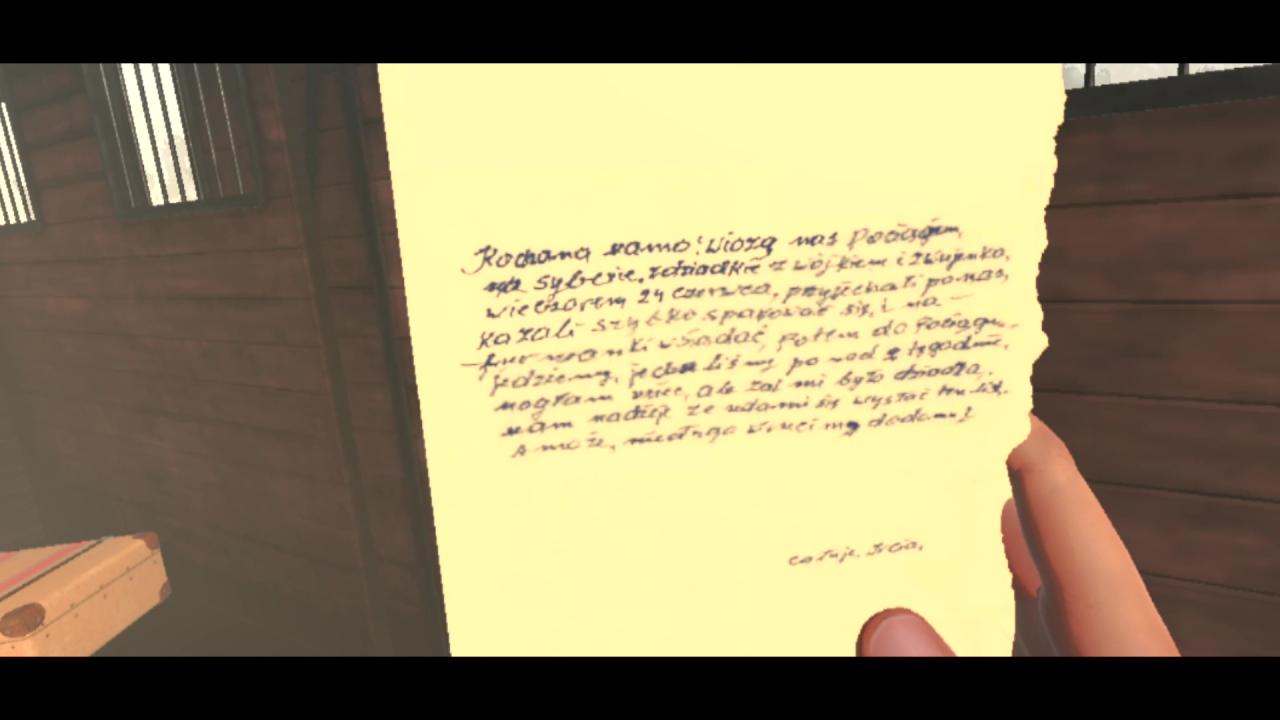 Kochana mamo! Wiozą nas pociągiem,
na syberię, z dziadkiem z wójkiem i z wujenką,
wieczorem 24 czerwca, przyjechali po nas,
kazali szybko spakować się, i na
furmanki wsadać, potem do pociągu.
jedziemy, jechaliśmy ponad 2 tygodnie,
mogłam uciec, ale żal mi było dziadka,
mam nadzieję że uda mi się wysłać ten list,
a może, niedługo wrócimy do domu!
całuję,